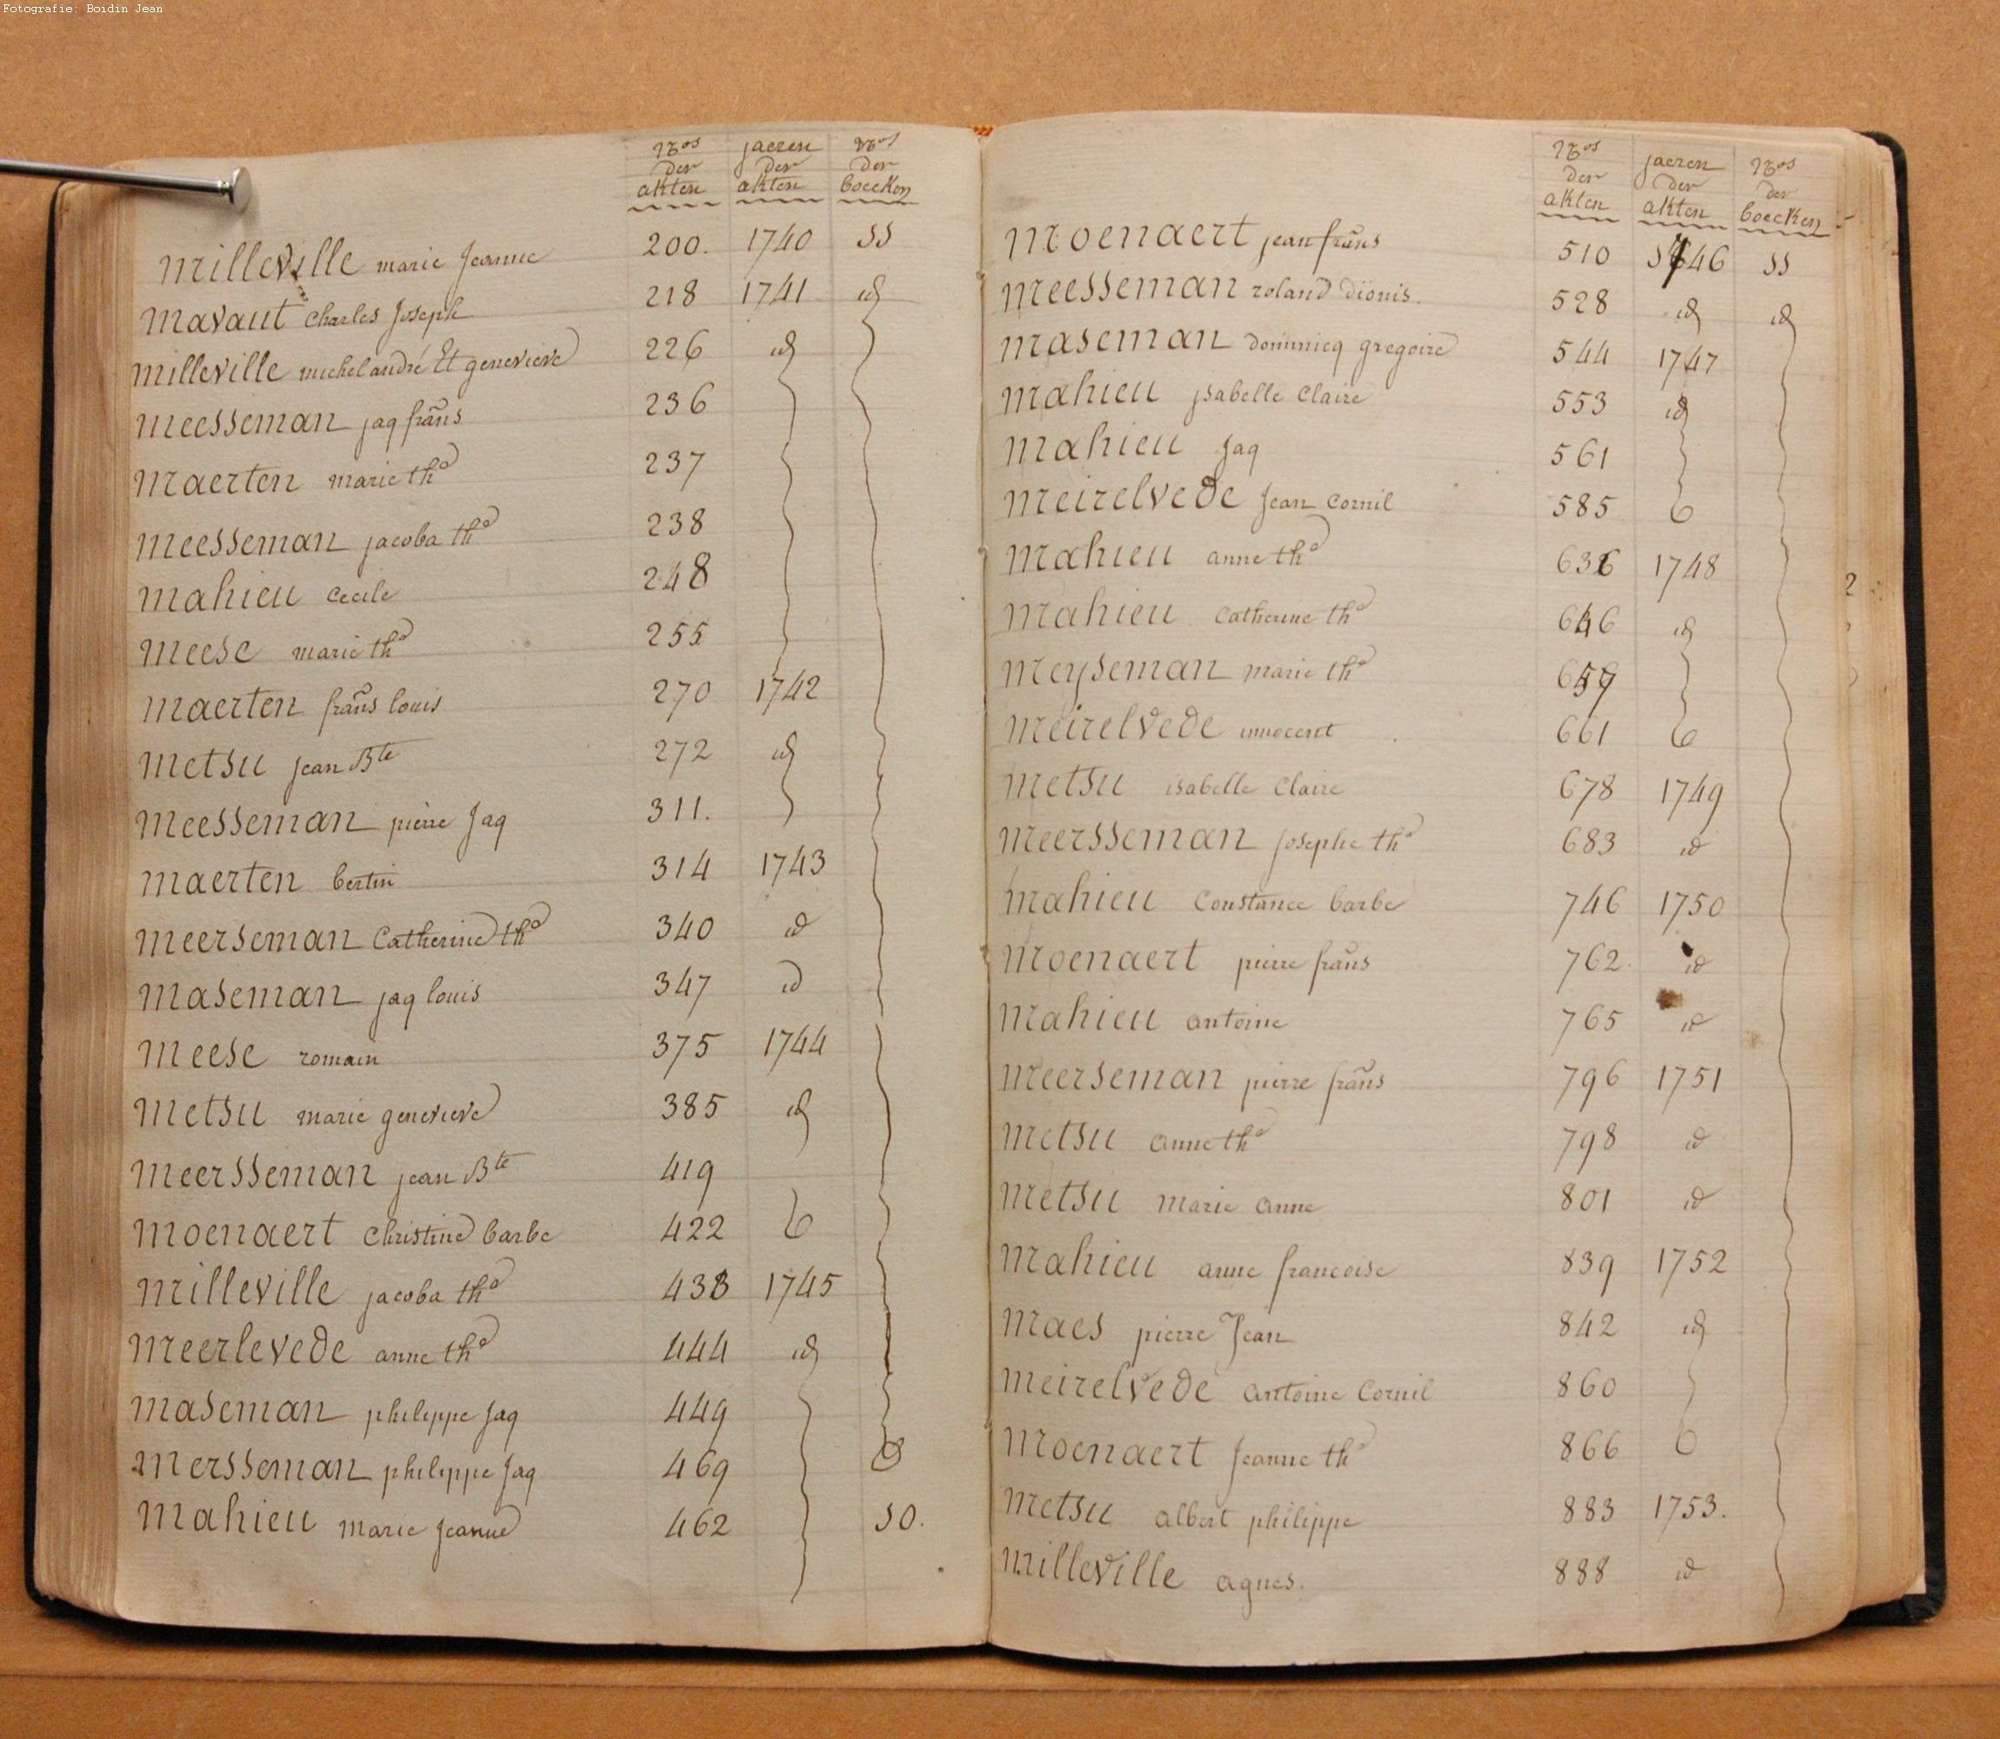 Fotografie: Boidin Jean
Nos jaeren Nos
der der der
akten akten boecken
Milleville marie Jeanne 200. 1740 SS
Mavaut Charles Joseph 218 1741 id
Milleville michel andré Et genevieve 226 id
Meesseman jaq frans 236
Maerten marie tha 237
Meesseman jacoba tha 238
Mahieu Cecile 248
Meese marie tha 255
Maerten frans louis 270 1742
Metsu jean Bte 272 id
Meesseman pierre Jaq 311.
Maerten bertin 314 1743
Meerseman Catherine tha 340 id
Maseman jaq louis 347 id
Meese romain 375 1744
Metsu marie genevieve 385 id
Meersseman jean Bte 419
Moenaert Christine barbe 422
Milleville jacoba tha 438 1745
Meerlevede anne tha 444 id
Maseman philippe Jaq 449
Mersseman philippe Jaq 469
Mahieu Marie Jeanne 462 SO.
Nos jaeren Nos
der der der
akten akten boecken
Moenaert jean frans 510 1746 SS
Meesseman roland dionis. 528 id id
Maseman dominicq gregoire 544 1747
Mahieu ysabelle Claire 553 id
Mahieu Jaq 561
Meirelvede Jean Cornil 585
Mahieu anne tha 636 1748
Mahieu Catherine tha 646 id
Meyseman marie tha 657
Meirelvede innocent 661
Metsu isabelle Claire 678 1749
Meersseman Josephe tha 683 id
Mahieu Constance barbe 746 1750
Moenaert pierre frans 762. id
Mahieu antoine 765 id
Meerseman pierre frans 796 1751
Metsu anne tha 798 id
Metsu Marie anne 801 id
Mahieu anne francoise 839 1752
Maes pierre Jean 842 id
Meirelvede antoine Cornil 860
Moenaert Jeanne tha 866
Metsu albert philippe 883 1753.
Milleville agnes. 888 id